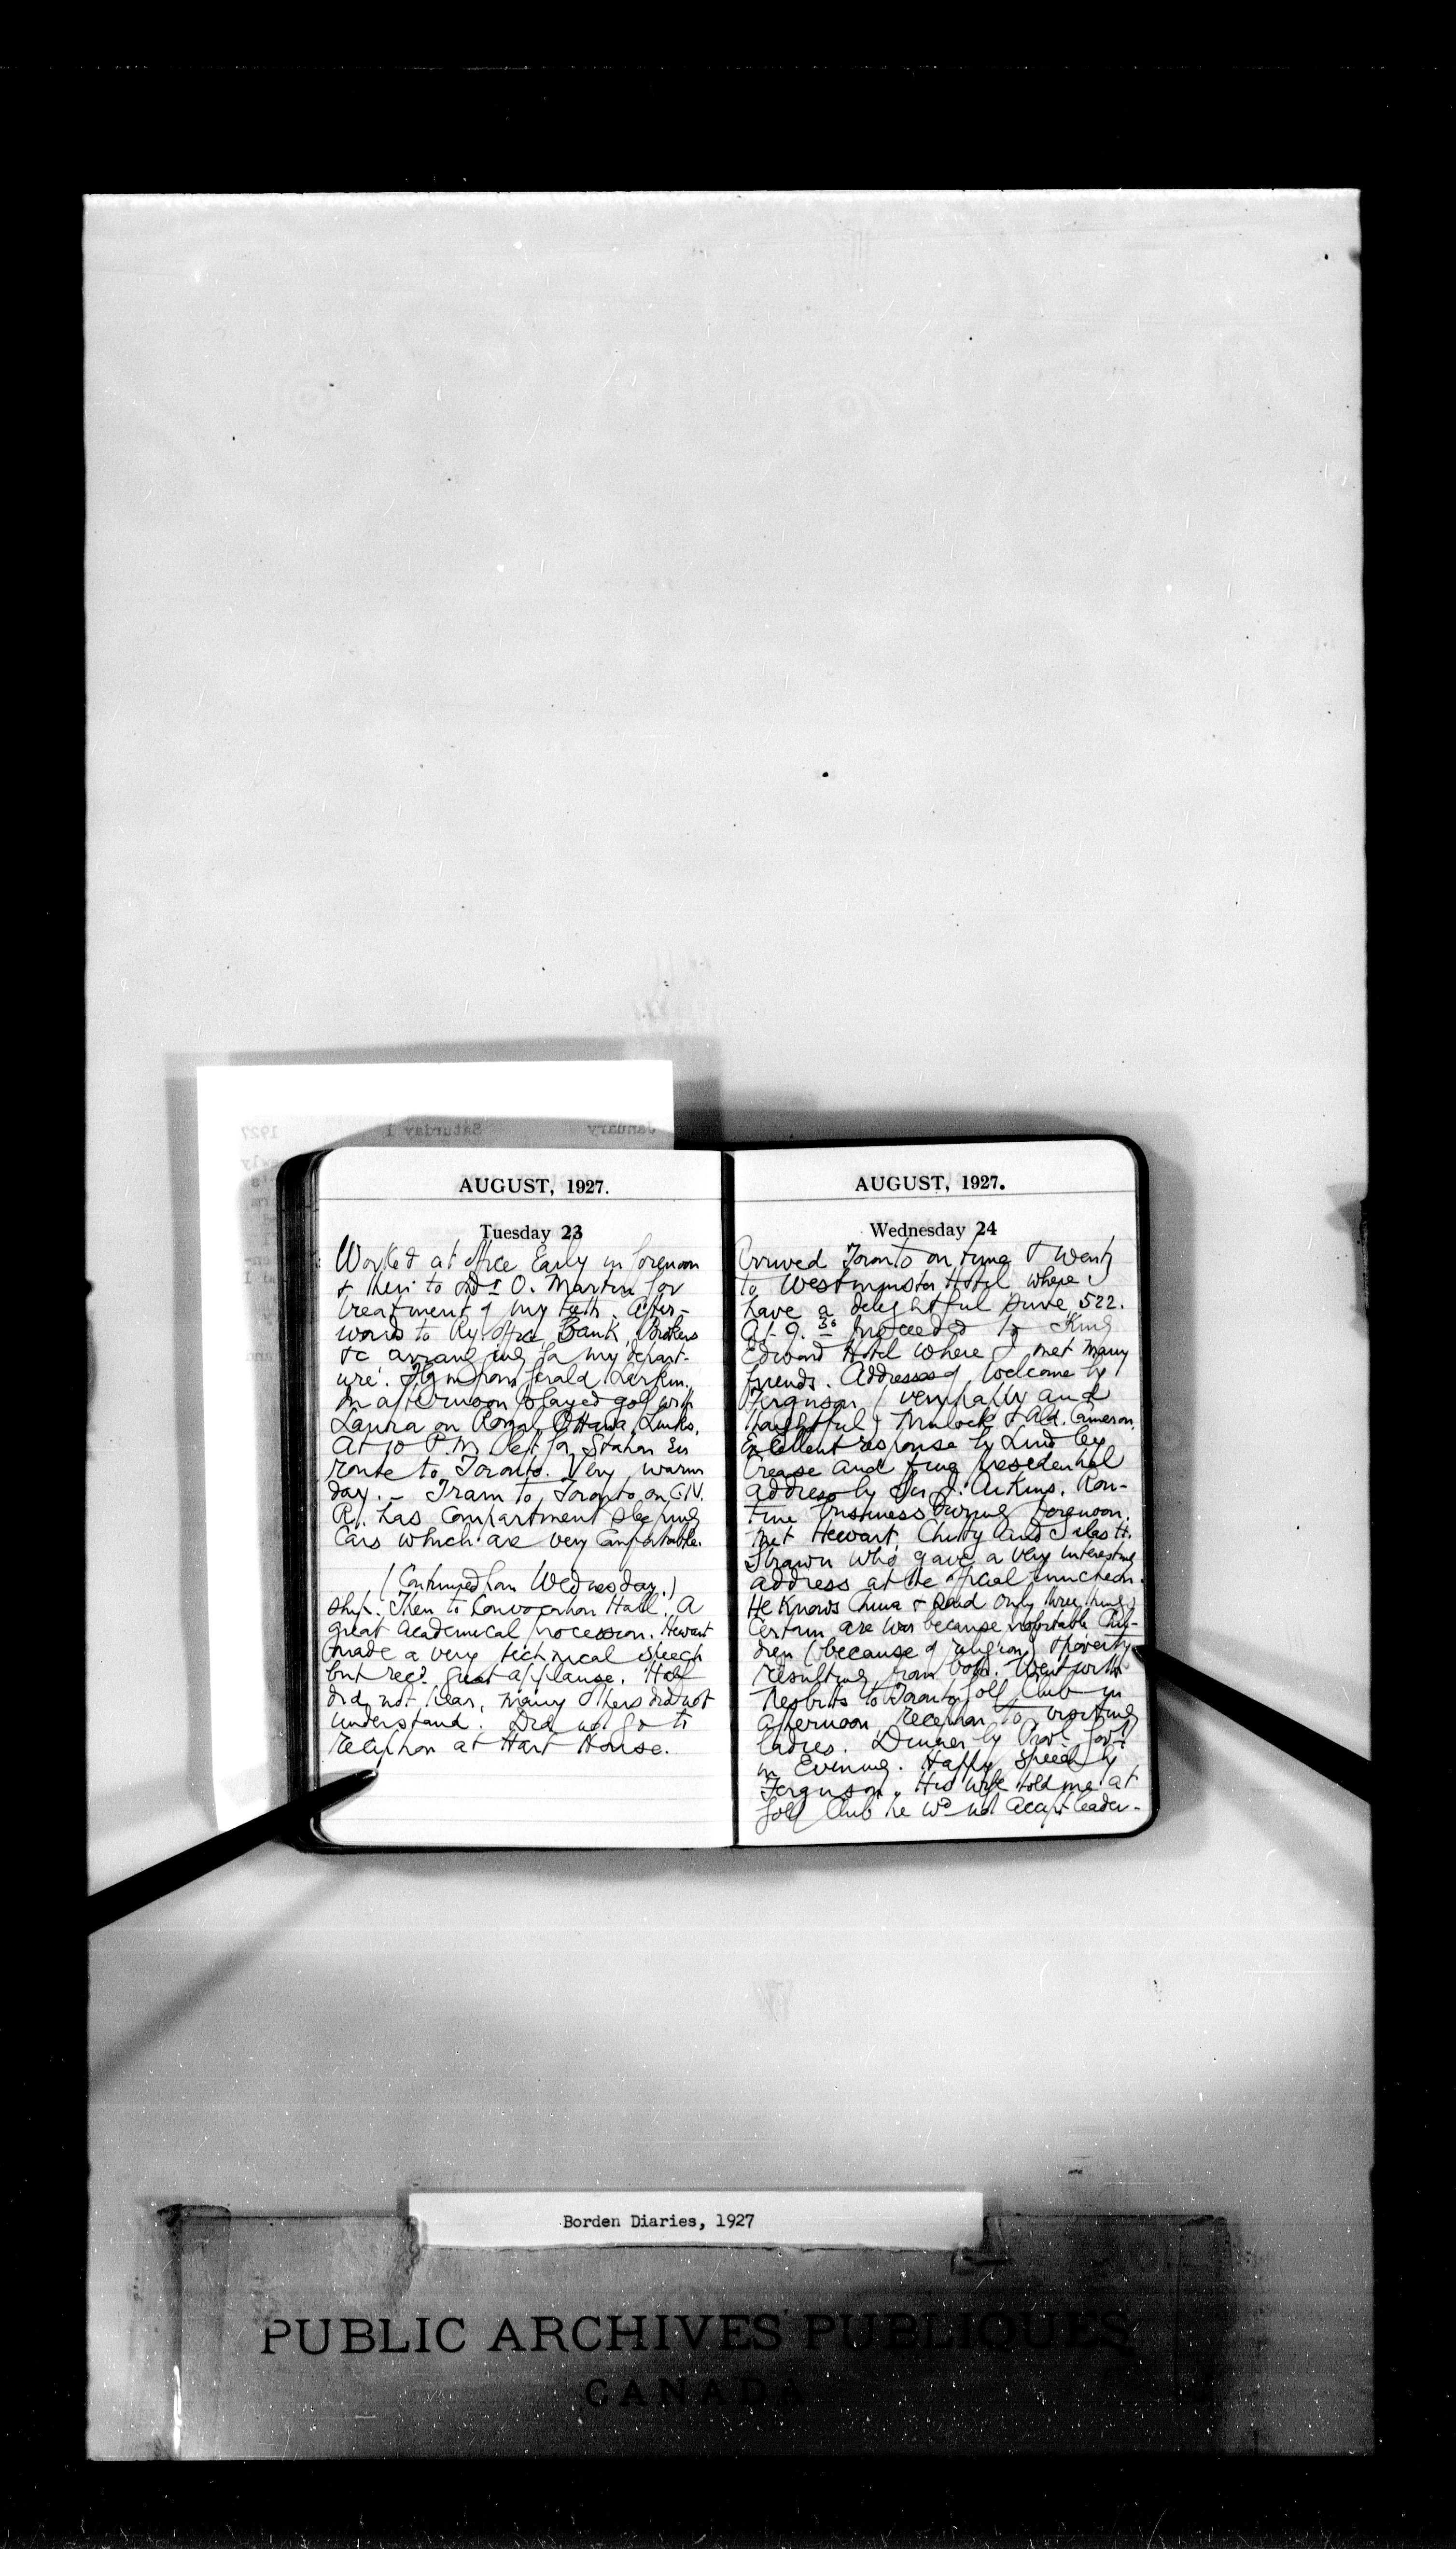 AUGUST, 1927.
Tuesday 23
Worked at office Early in forenoon
& then to Dr O. Martin for
treatment of my teeth. After-
wards to Ry. office, Bank, Brokers
&c arranging for my depart-
ure. from Gerald Larkin.
In afternoon played golf with
Laura on Royal Ottawa Links.
At 10 P.M. left for Station En
route to Toronto. Very warm
day. – Train to Toronto on C.N.
R. has Compartment sleeping
Cars which are very Comfortable.
(Continued from Wednesday.)
ship. Then to Convocation Hall. A
great Academical procession. Hewart
made a very technical speech
but recd. great applause. Half
did not hear, many others did not
understand. Did not go to
reception at Hart House.
AUGUST, 1927.
Wednesday 24
Arrived Toronto on time & went
to Westminster Hotel where I
have a delightful suite, 522.
At 9.30 proceeded to King
Edward Hotel where I met many
friends. Addresses of Welcome by
Ferguson (very happy and
thoughtful) Mulock & Ald. Cameron.
Excellent response by Lindley
Crease and fine presidential
address by Sir J. Aikins. Rou-
tine business during forenoon.
Met Hewart, Chitty and Silas H.
Strawn who gave a very interesting
address at the official luncheon.
He knows China & said only three things
Certain are War because Chil-
dren (because of religion) & poverty
resulting from both. Went with
Nesbitts to Toronto Golf Club in
afternoon, reception to visiting
ladies. Dinner by Provl. Govt.
in Evening. Happy speech by
Ferguson. His wife told me at
Golf Club he wd not accept leader-
Borden Diaries, 1927
PUBLIC ARCHIVES PUBLIQUES
CANADA
January Saturday 1 1927